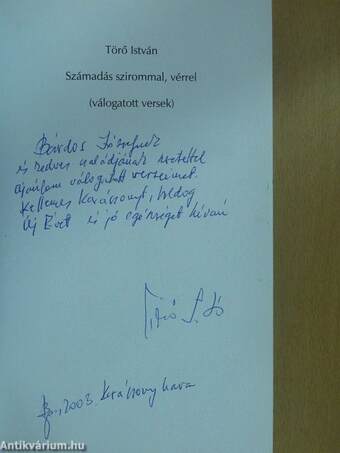 Törő István
Számadás szirommal, vérrel
(válogatott versek)
Bárdos Józsefnek
és kedves családjának szeretettel
ajánlom válogatott verseimet.
Kellemes Karácsonyt, boldog
Új Évet és jó egészséget kíván
Törő
2003. Karácsony hava
Antikvárium.hu